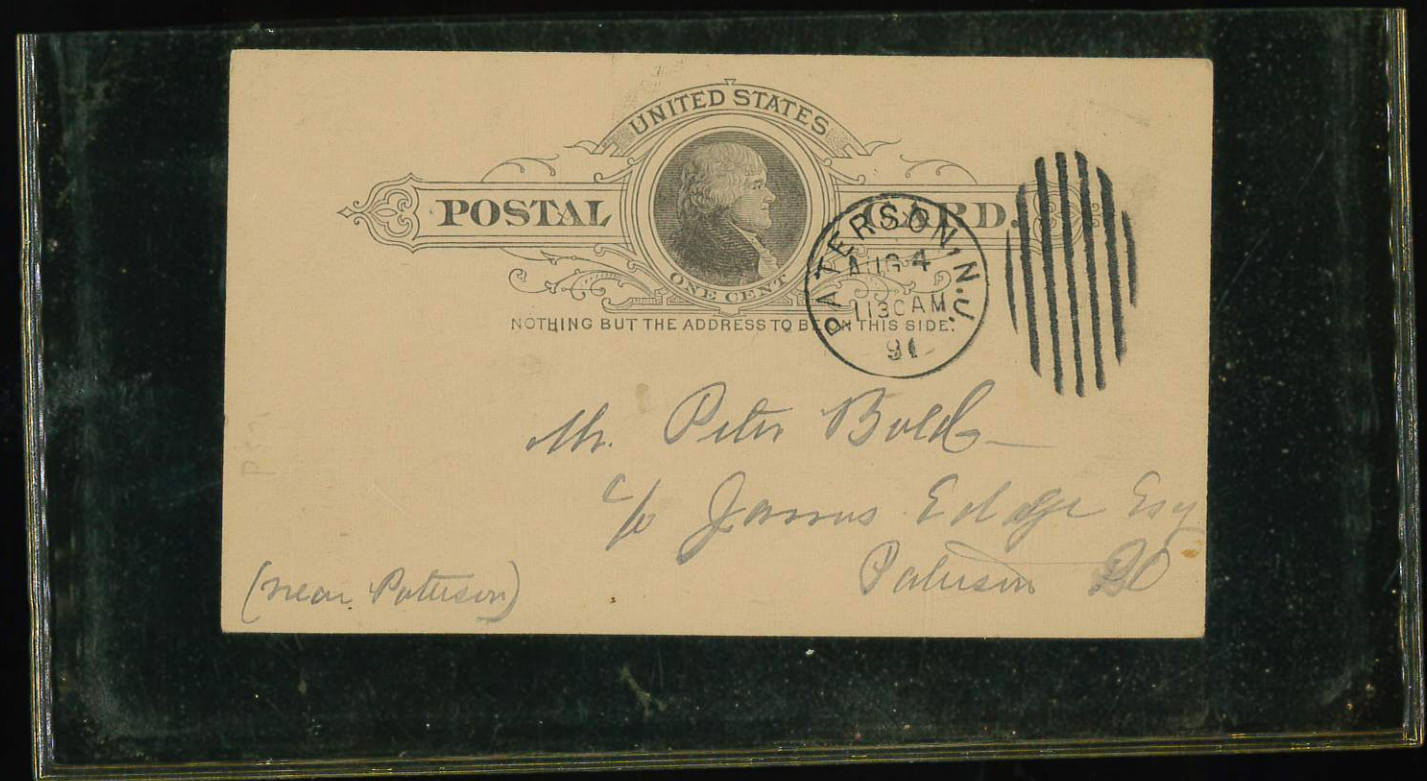 UNITED STATES
POSTAL CARD.
ONE CENT
NOTHING BUT THE ADDRESS TO BE ON THIS SIDE.
PATERSON, N.J.
AUG 4
1130AM
91
Mr. Peter Bold
c/o James Edge Esq
Paterson PO
(near Paterson)